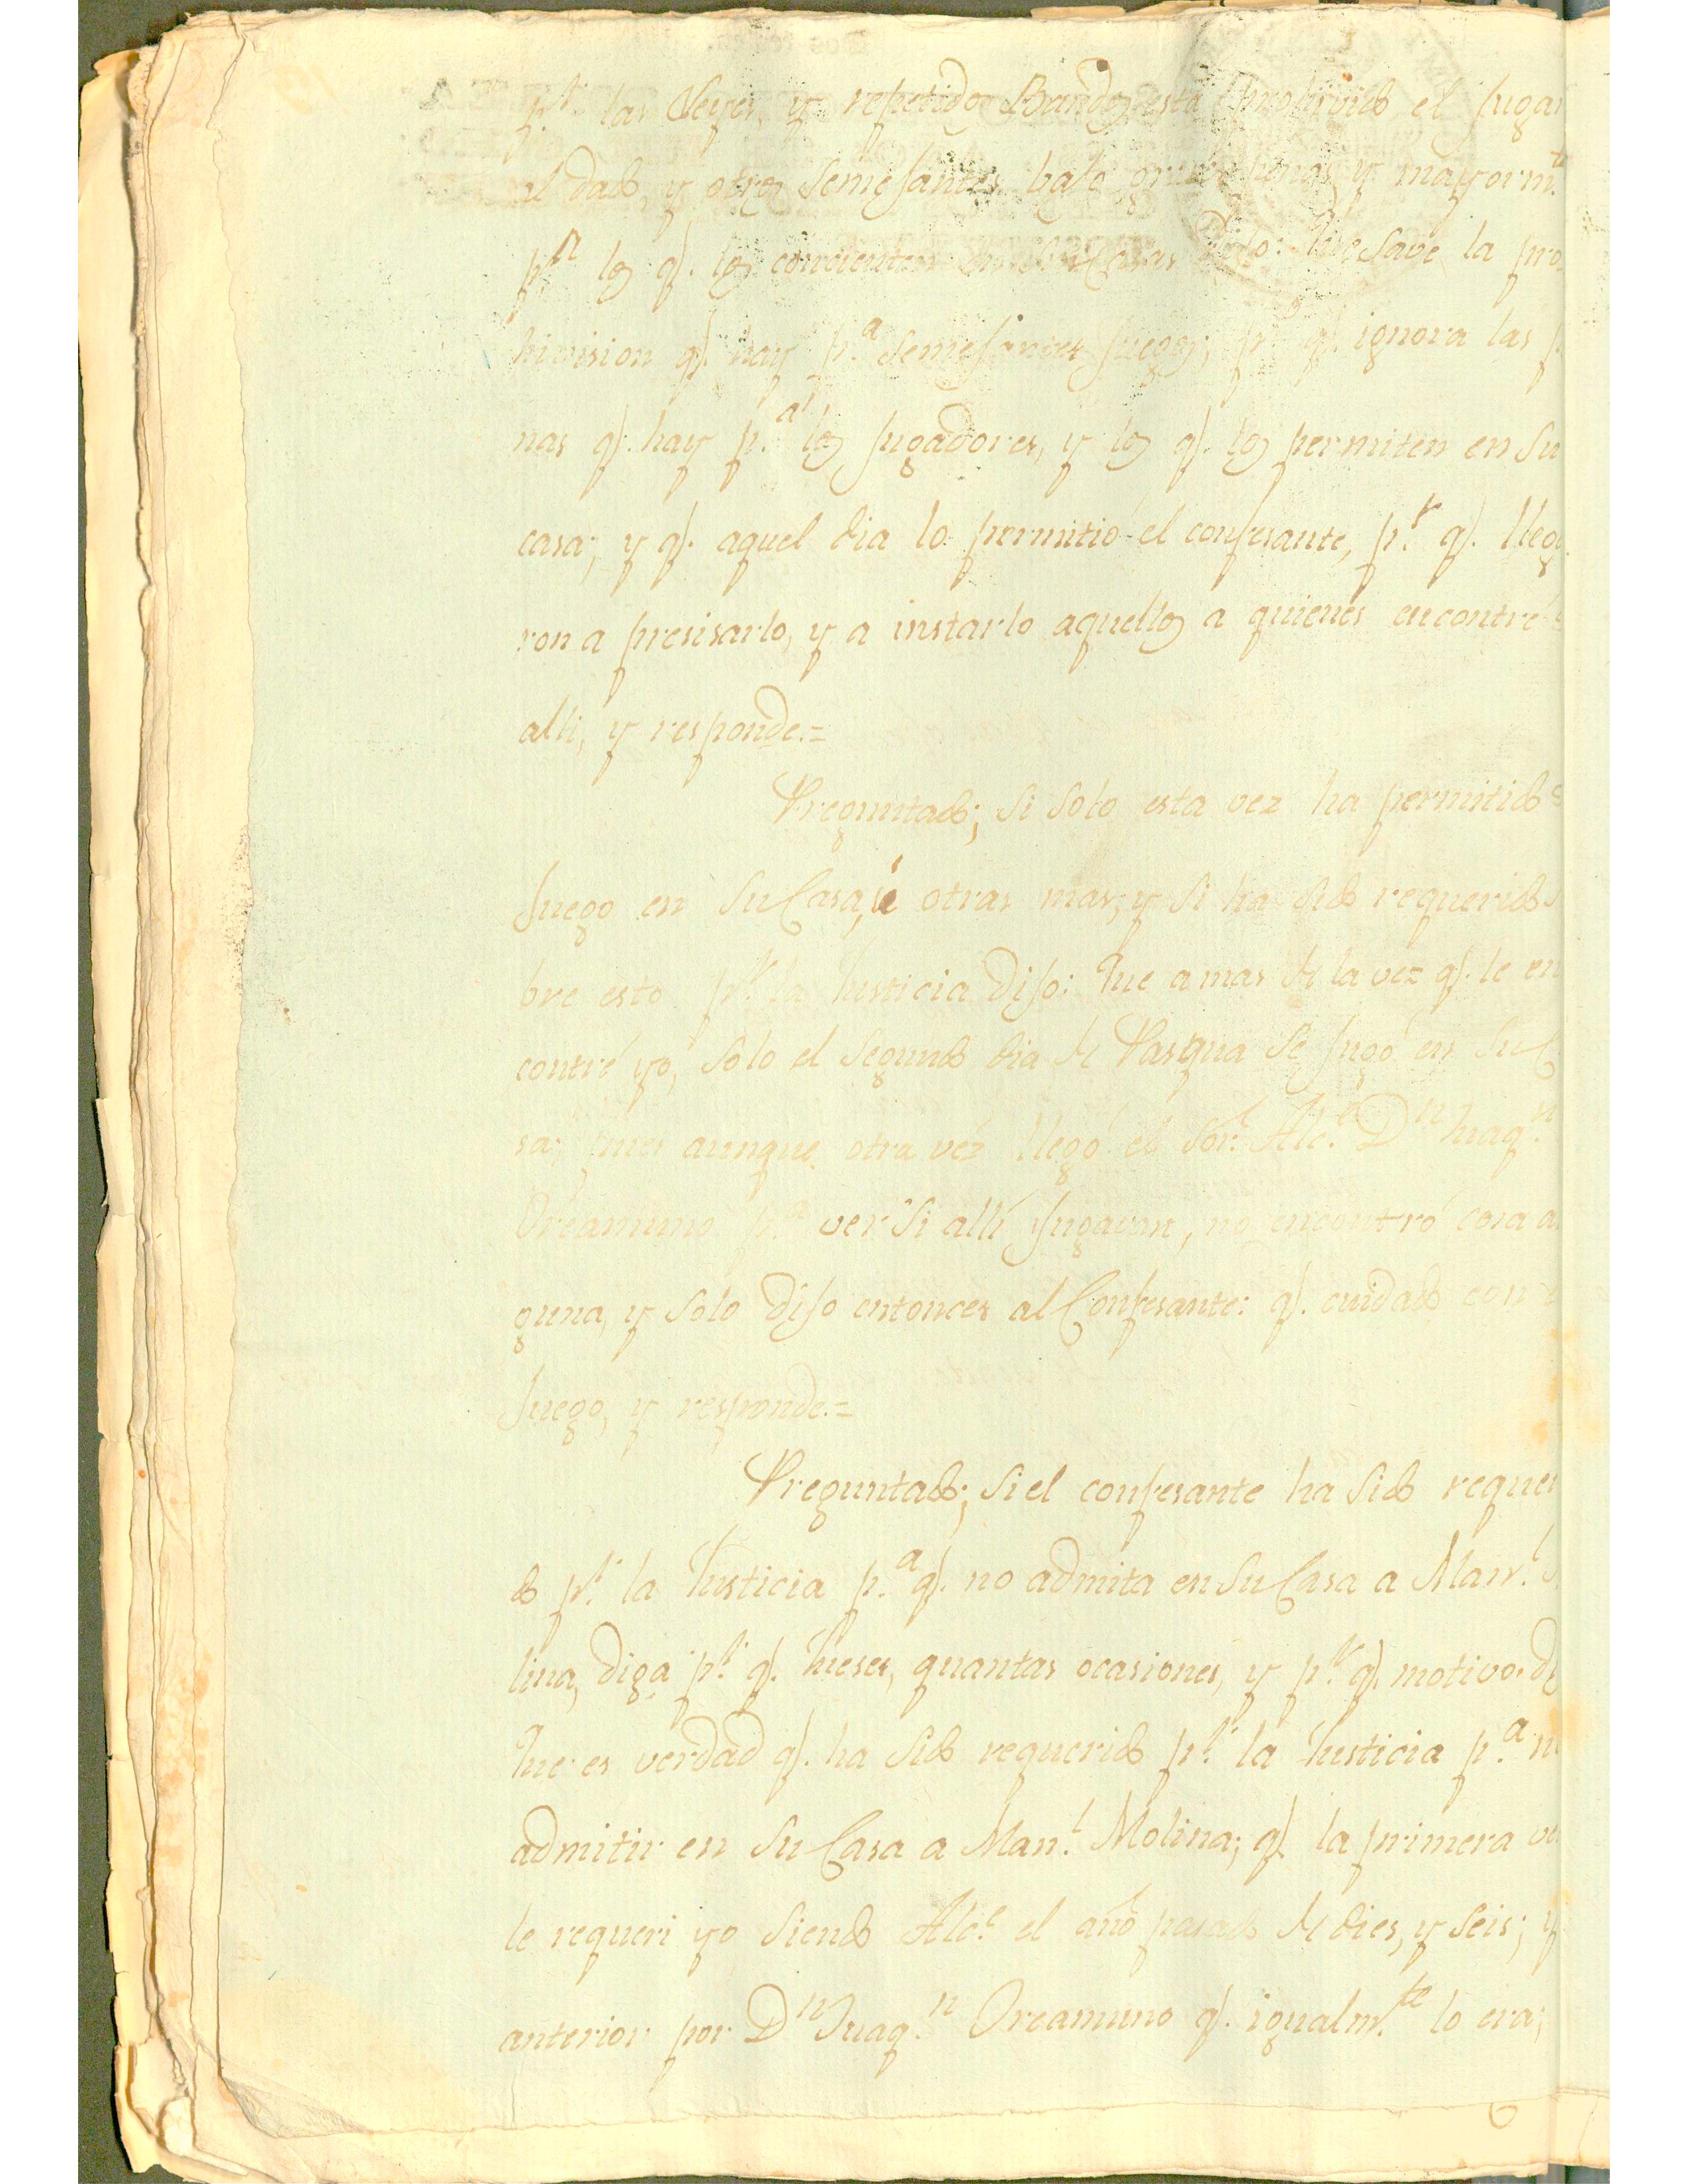 p.r las Leyes, y repetidos Bandos está prohivido el jugar
al dado, y otros semejantes bajo graves penas y mayorm.te
p.a los q.e los concienten en sus Casas Dijo: Que save la pro
hivision q.e hay p.a semejantes juegos; p.o q.e ignora las p
nas q.e hay p.a los jugadores, y los q.e los permiten en su
casa; y q.e aquel dia lo permitió el confesante, p.r q.e llega
ron a presisarlo, y a instarlo aquellos a quienes encontré
alli, y responde.=
Preguntado; si solo esta vez ha permitido
Juego en su Casa, ú otras mas; y si ha sido requerido
bre esto p.r la Justicia dijo: Que a mas de la vez q.e le en
contré yo, solo el segundo dia de Pasqua se jugó en su C
sa; pues aunque otra vez llegó el Sor. Alc.e D.n Juaq.n
Oreamuno p.a ver si allí jugavan, no encontró cosa a
guna, y solo dijo entonces al Confesante: q.e cuidado con
Juego, y responde.=
Preguntado; si el confesante ha sido requer
do p.r la Justicia p.a q.e no admita en su Casa a Man.l
lina, diga p.r q.e Jueses, quantas ocasiones, y p.r q.e motivo. D
Que es verdad q.e ha sido requerido p.r la Justicia p.a n
admitir en su Casa a Man.l Molina; q.e la primera ve
le requeri yo siendo Alc.e el año pasado de dies, y seis; y
anterior por D.n Juaq.n Oreamuno q.e igualm.te lo era;